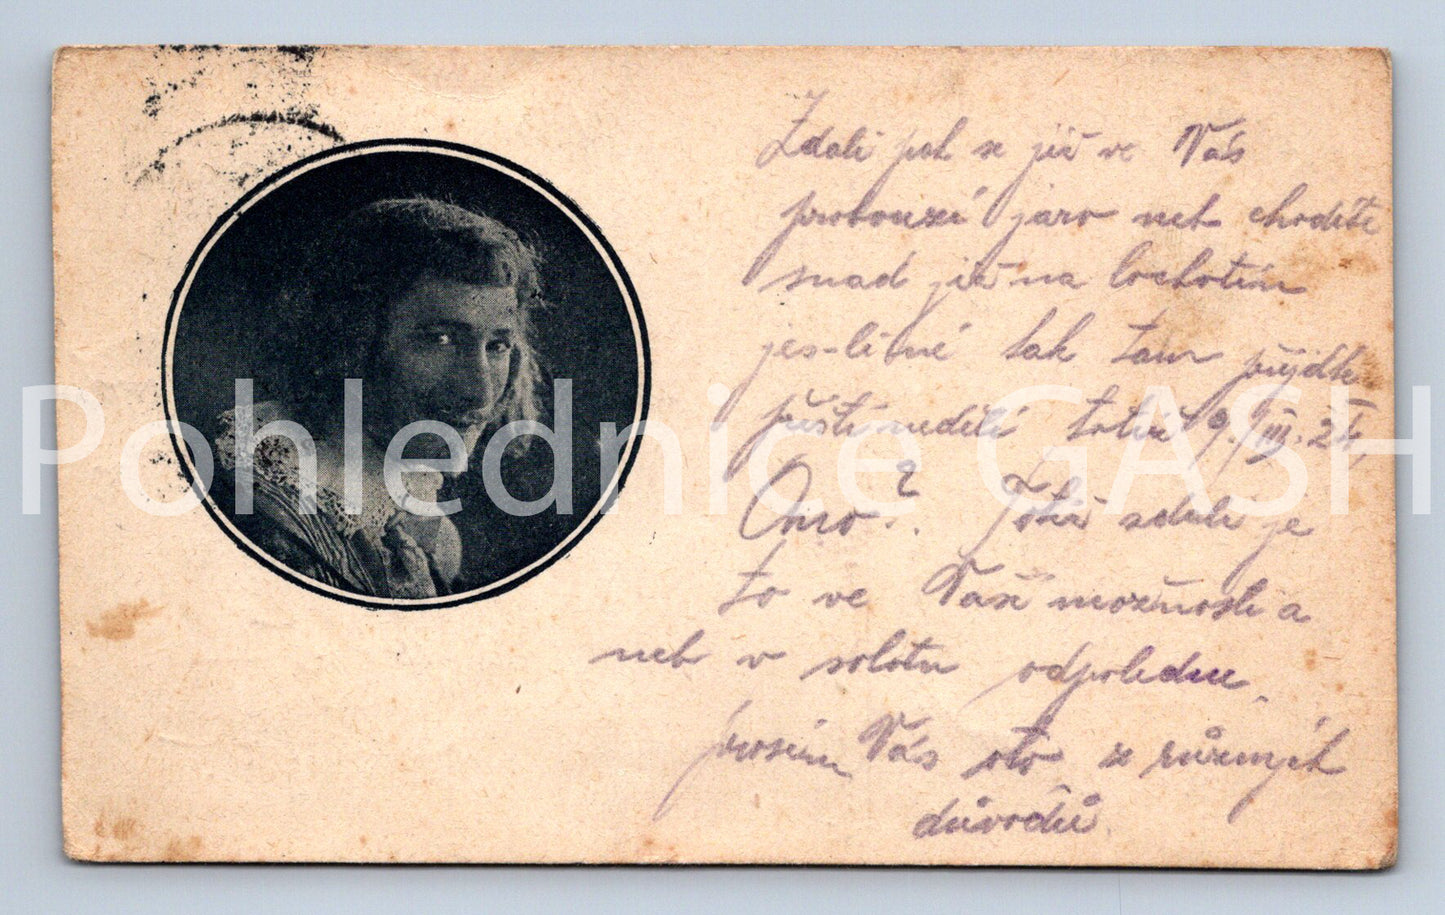 Zdali pak se již ve Vás
probouzí jaro neb chodíte
snad již na Lochotín
jes-li né tak tam přijdte
příští neděli totiž 9./III. 24,
Ano?. Totiž zdali je
to ve Vaší možnosti a
neb v sobotu odpoledne,
prosím Vás oto z různých
důvodů.
Pohlednice GASH